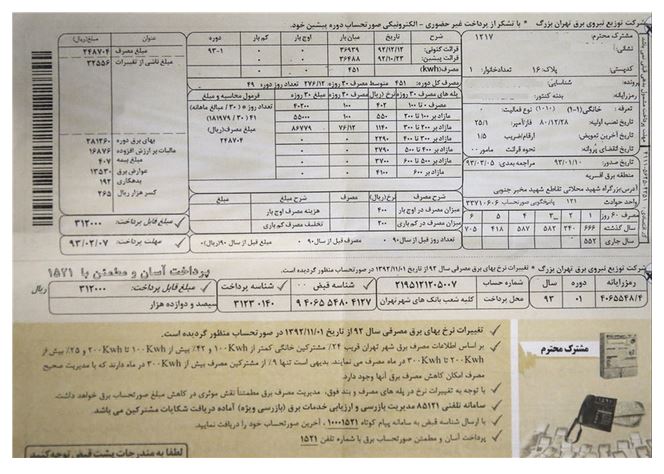 شرکت توزیع نیروی برق تهران بزرگ * با تشکر از پرداخت غیر حضوری - الکترونیکی صورتحساب دوره پیشین خود.
مشترک محترم: ۱۲۱۷
نشانی:
کدپستی: پلاک: ۱۶ تعدادخانوار: ۱
پرونده: شناسایی:
رمز رایانه: بدنه کنتور:
تعرفه: خانگی (۱-۱) (۱۰۱۰) نوع فعالیت: ۰
تاریخ نصب اولیه: ۸۰/۱۲/۲۸ آمپر: ۲۵/۱
تاریخ آخرین تعویض: ارقام/ضریب: ۱/۵
تاریخ انقضای پروانه: نحوه قرائت: مامور ۰۰
تاریخ صدور: ۹۳/۰۱/۱۰ مراجعه بعدی: ۹۳/۰۳/۰۵
منطقه برق: افسریه
آدرس: بزرگراه شهید محلاتی تقاطع شهید مخبر جنوبی
واحد حوادث ۱۲۱ پاسخگویی صورتحساب ۳۳۷۱۰۶۰۶
مصرف ۶۰ روز ۱ ۲ ۳ ۴ ۵ ۶
سال گذشته ۶۶۶ ۲۴۰ ۵۸۲ ۵۸۷ ۴۱۸ ۷۰۵
سال جاری ۵۵۲
شرح تاریخ میان بار اوج بار کم بار دوره
قرائت کنونی: ۹۲/۱۲/۱۲ ۳۶۹۳۹ ۰ ۰ ۹۳-۱
قرائت پیشین: ۹۲/۱۰/۲۳ ۳۶۴۸۸ ۰ ۰
مصرف (kwh) ۴۵۱ ۰ ۰
مصرف کل دوره: ۴۵۱ متوسط مصرف ۳۰ روزه: ۲۷۶/۱۲ تعداد روز دوره: ۴۹
پله های مصرف ۳۰ روزه نرخ (ریال) مصرف ۳۰ روزه مبلغ ۳۰ روزه فرمول محاسبه و مبلغ
مصرف ۰ تا ۱۰۰ ۴۰۲ ۱۰۰ ۴۰۲۰۰ تعداد روز * (۳۰ / مبالغ ماهانه)
مازاد بر ۱۰۰ تا ۲۰۰ ۵۵۰ ۱۰۰ ۵۵۰۰۰ ۴۱ * (۳۰ / ۱۸۱۹۷۹)
مازاد بر ۲۰۰ تا ۳۰۰ ۱۱۴۰ ۷۶/۱۲ ۸۶۷۷۹ مبلغ مصرف (ریال)
۲۴۸۷۰۴
شرح مصرف نرخ (ریال) مبلغ شرح مصرف مبلغ
میزان مصرف در اوج بار ۴۰۰ هزینه مصرف اوج بار
میزان مصرف در کم باری ۲۰۰ تخفیف مصرف کم باری
تعداد روز قبل از ۹۰/۵ ۰ مصرف قبل از سال ۹۰ ۰ مبلغ قبل از سال ۹۰ (ریال) ۰
عنوان مبلغ (ریال)
مبلغ مصرف ۲۴۸۷۰۴
مبلغ ناشی از تغییرات ۳۲۵۵۶
بهای برق دوره ۲۸۱۲۶۰
مالیات بر ارزش افزوده ۱۶۸۷۶
مبلغ بیمه ۴۰۷
عوارض برق ۱۳۵۳۰
بدهکاری ۱۹۲
کسر هزار ریال ۲۶۵
مبلغ قابل پرداخت: ۳۱۲۰۰۰
مهلت پرداخت: ۹۳/۰۲/۰۷
شرکت توزیع نیروی برق تهران بزرگ * تغییرات نرخ بهای برق مصرفی سال ۹۲ از تاریخ ۱۳۹۲/۱۱/۰۱ در صورتحساب منظور گردیده است.
پرداخت آسان و مطمئن با ۱۵۲۱
رمز رایانه دوره سال شماره حساب شناسه قبض ۰۰ شناسه پرداخت مبلغ قابل پرداخت: ۳۱۲۰۰۰ ریال
۴۰۶۵۵۴۸/۴ ۰۱ ۹۳ ۲۱۹۵۱۲۱۲۰۵۰۰۷ ۹ ۴۰۶۵ ۵۴۸۰ ۴۱۲۷ ۳۱۲۳ ۰۱۴۰
محل پرداخت کلیه شعب بانک های شهر تهران سیصد و دوازده هزار
مشترک محترم
تغییرات نرخ بهای برق مصرفی سال ۹۲ از تاریخ ۱۳۹۲/۱۱/۰۱ در صورتحساب منظور گردیده است.
بر اساس اطلاعات مصرف برق شهر تهران قریب ۲۴٪ مشترکین خانگی کمتر از ۱۰۰Kwh و ۴۲٪ بیش از ۱۰۰Kwh تا ۲۰۰Kwh و ۲۵٪ بیش از
۲۰۰Kwh تا ۳۰۰Kwh در ماه مصرف می نمایند. بدیهی است تنها ۹٪ از مشترکین مصرف بیش از ۳۰۰Kwh در ماه دارند که با مدیریت صحیح
مصرف امکان کاهش مصرف برق آنها وجود دارد.
با توجه به تغییرات نرخ در پله های مصرف و بند فوق، مدیریت مصرف برق مطمئناً نقش موثری در کاهش مبلغ صورتحساب برق خواهد داشت.
سامانه تلفنی ۸۵۱۲۱ مدیریت بازرسی و ارزیابی خدمات برق (بازرسی ویژه) آماده دریافت شکایات مشترکین می باشد.
با ارسال شناسه قبض به سامانه پیام کوتاه ۱۰۰۰۱۵۲۱ ، آخرین صورتحساب خود را دریافت نمایید.
پرداخت آسان و مطمئن صورتحساب برق با شماره تلفن ۱۵۲۱
لطفا به مندرجات پشت قبض توجه کنید